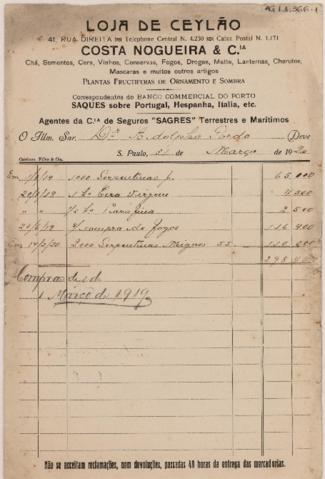 LOJA DE CEYLÃO
41, RUA DIREITA Telephone Central N. 4.230 Caixa Postal N. 1.171
COSTA NOGUEIRA & C.IA
Chá, Sementes, Cera, Vinhos, Conservas, Fogos, Drogas, Matte, Lanternas, Charutos,
Mascaras e muitos outros artigos
PLANTAS FRUCTIFERAS DE ORNAMENTO E SOMBRA
Correspondentes do BANCO COMMERCIAL DO PORTO
SAQUES sobre Portugal, Hespanha, Italia, etc.
Agentes da C.ia de Seguros "SAGRES" Terrestres e Maritimos
O Illm. Snr. Dr. Adolpho Gordo Deve
S. Paulo, 31 de Março de 1920
1000 Serpentinas p. 65.000
Cera Virgem 4.000
2.500
compra de fogos 116.400
2000 Serpentinas 55
Compras de
1 Março de 1919
Não se acceitam reclamações, nem devoluções, passadas 48 horas da entrega das mercadorias.